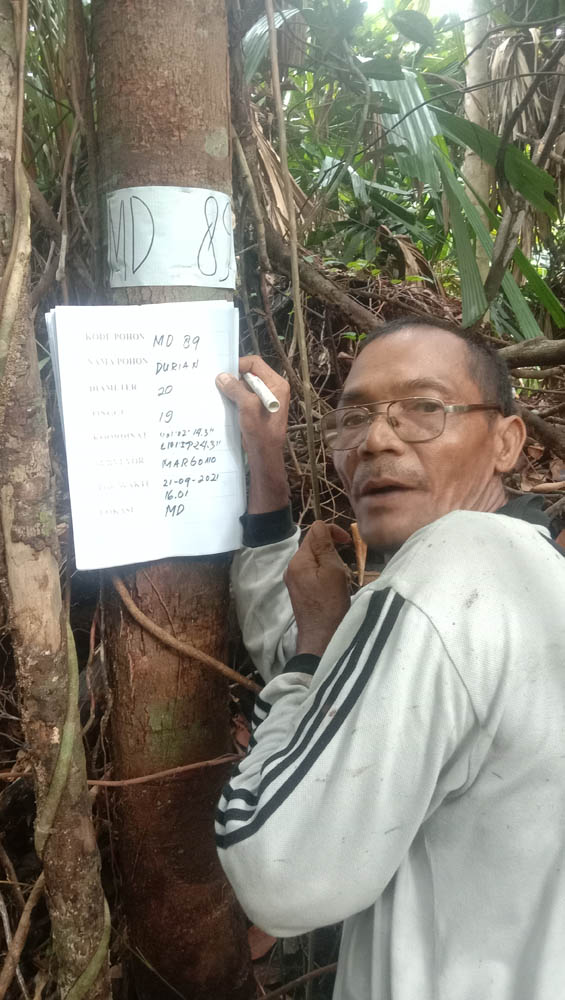 MD 89
KODE POHON MD 89
NAMA POHON DURIAN
DIAMETER 20
TINGGI 19
KOORDINAT
SURVEYOR MARGONO
WAKTU 21-09-2021
16.01
LOKASI MD